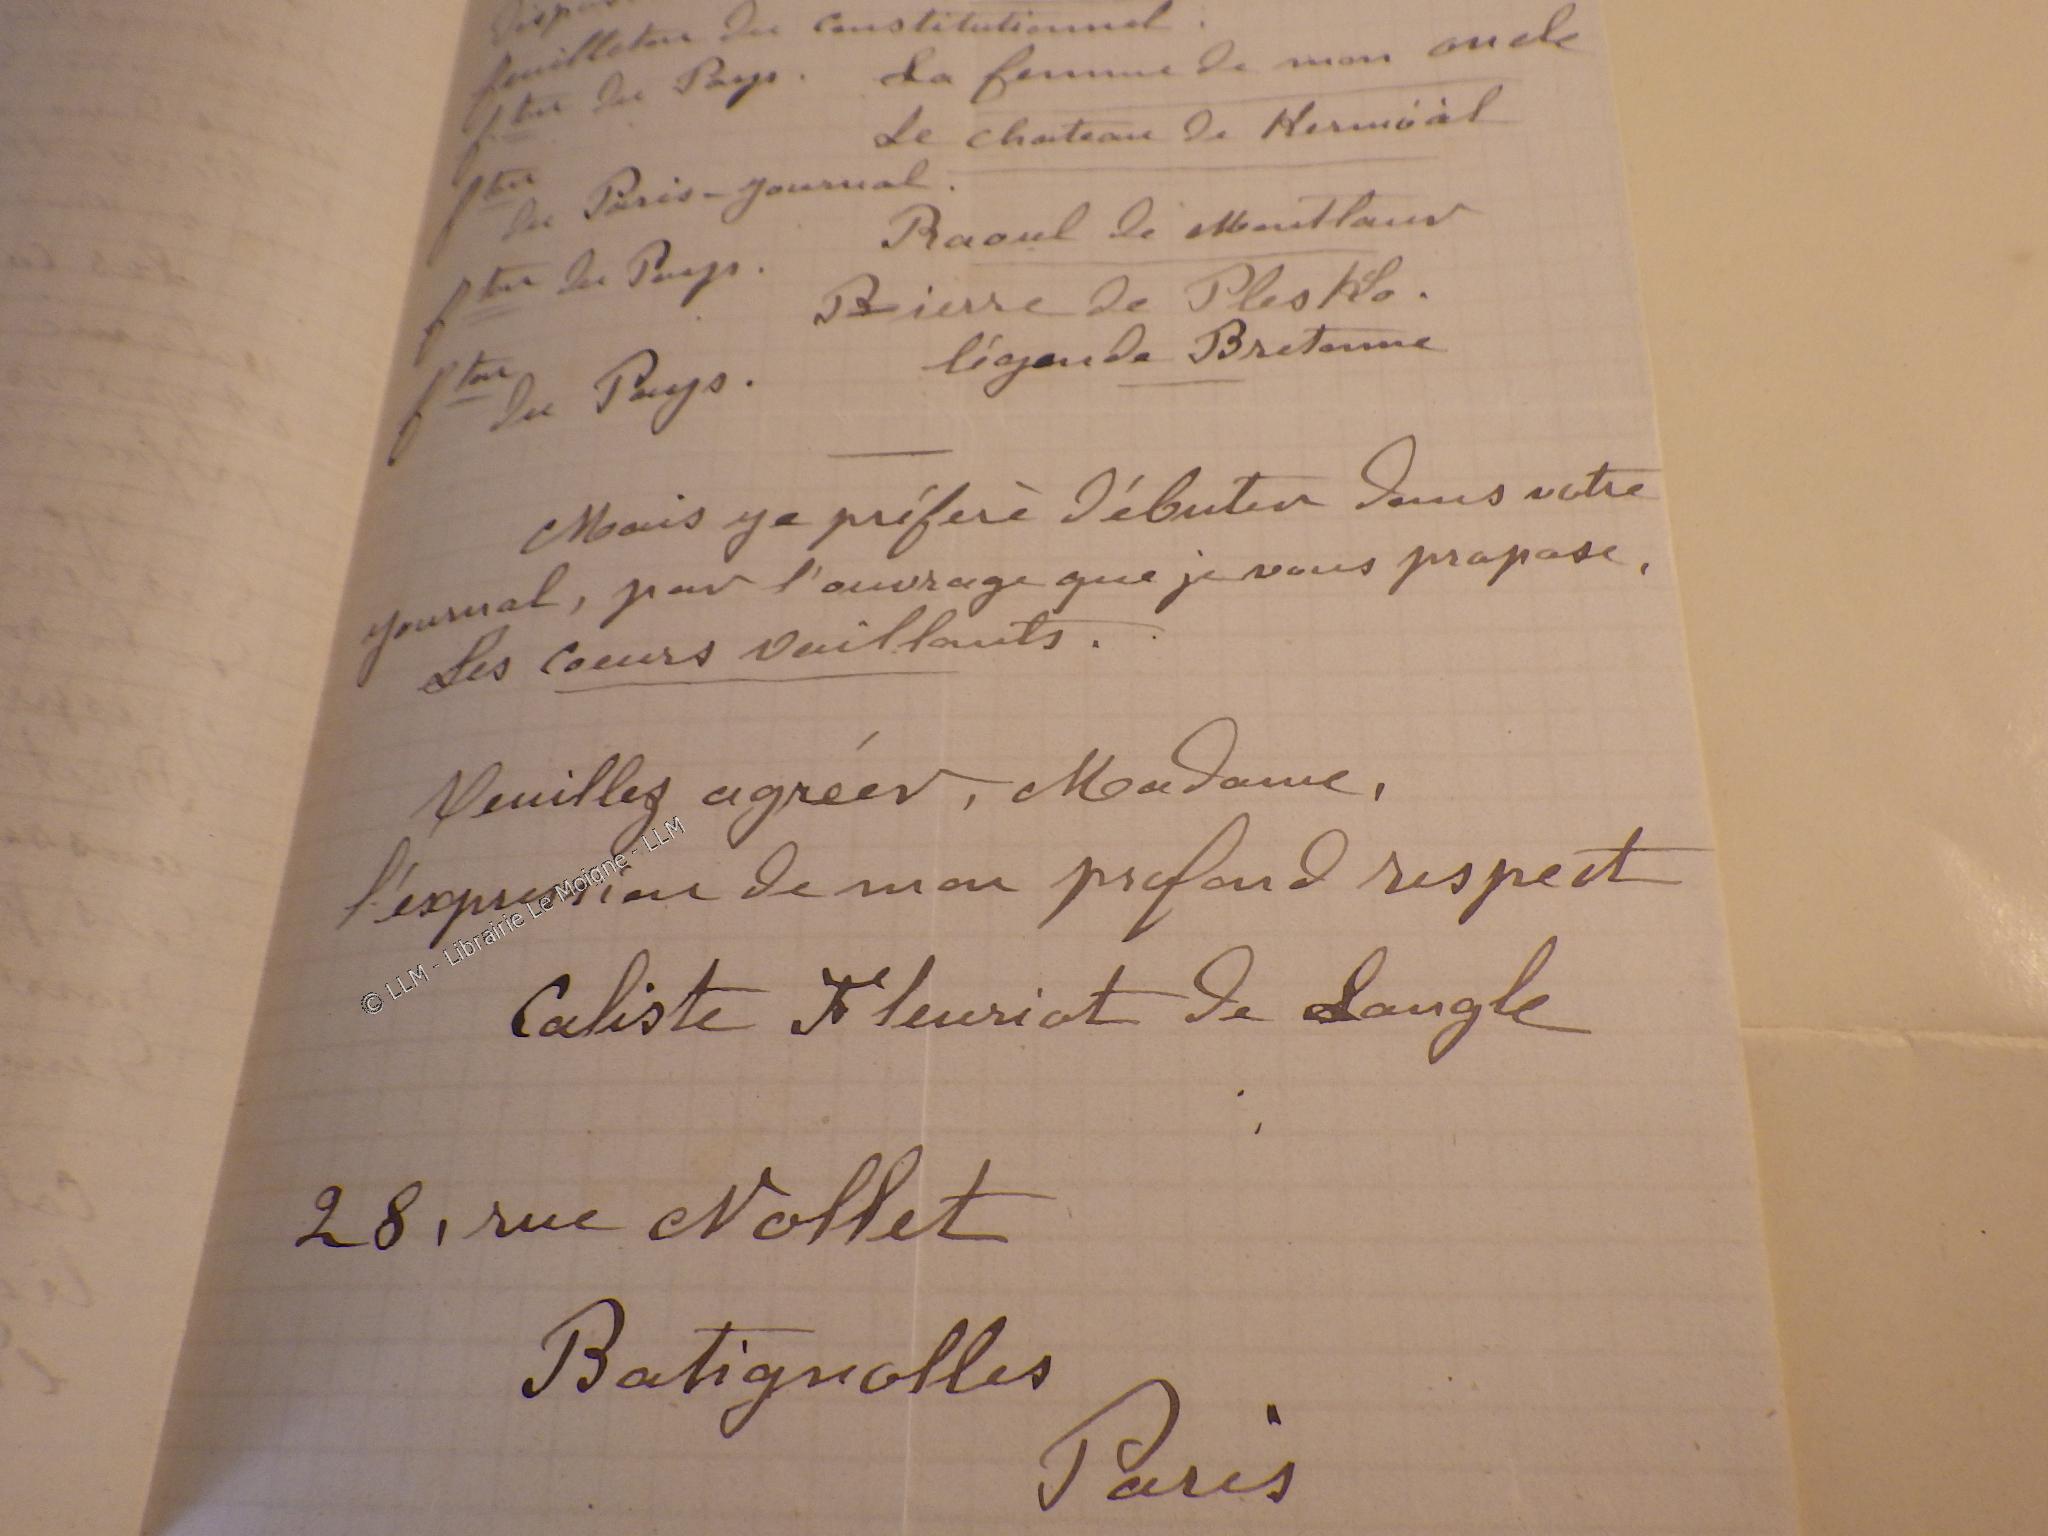 feuilleton du Constitutionnel.
fton du Pays. La femme de mon oncle
Le chateau de Kermóàl
fton du Paris-Journal.
Raoul de Montlaur
fton du Pays.
Pierre de PlesKo.
légende Bretonne
fton du Pays.
Mais je préferè débuter dans votre
journal, par l'ouvrage que je vous propose,
Les Coeurs vaillants.
Veuillez agréér, Madame,
l'expression de mon profond respect
Caliste Fleuriot de Langle
28, rue Nollet
Batignolles
Paris
© LLM - Librairie Le Moigne - LLM